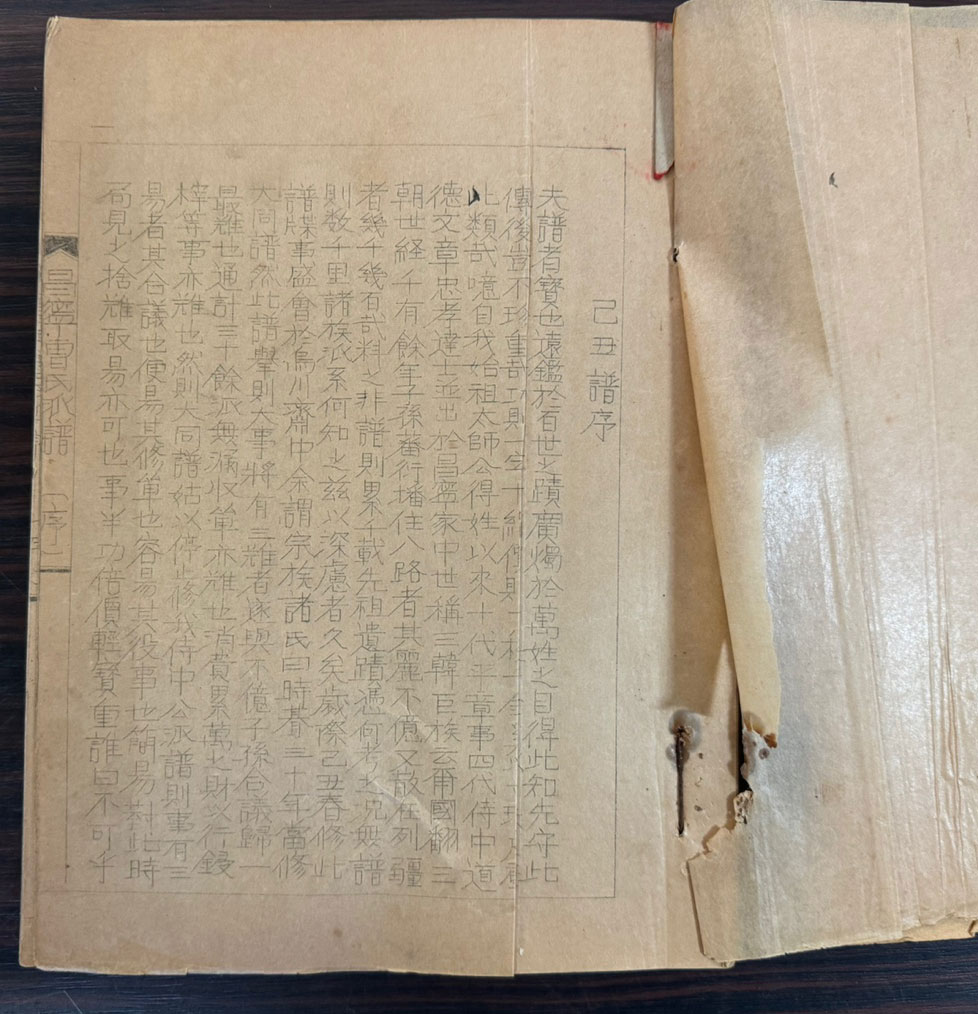 己丑譜序
夫譜者寶也遠鑑於百世之蹟廣燭於萬姓之目得此知先守此
傳後豈不珍重哉功則一字十
此類哉噫自我始祖太師公得姓以來十代平章事四代侍中道
德文章忠孝達士並出於昌寧家中世稱三韓巨族云爾國翻三
朝世経千有餘年子孫蕃衍播住八路者其麗不億又散在列疆
者幾千幾百哉料之非譜則累千載先祖遺蹟憑何考之况無譜
則数千里諸族派系何知之玆以深慮者久矣歲際己丑春修此
譜牒事盛會於烏川齋中余謂宗族諸氏曰時暮三十年當修
大同譜然此譜擧則大事將有三難者遂與不億子孫合議歸一
最難也通計三十餘派無漏收單亦難也消費累萬之財以行鋟
梓等事亦難也然則大同譜姑以停止修我侍中公派譜則事有三
易者其合議也便易其修單也容易其役事也簡易對此時
局見之捨難取易亦可也事半功倍價輕寶重誰曰不可乎
昌寧曺氏派譜 序 一